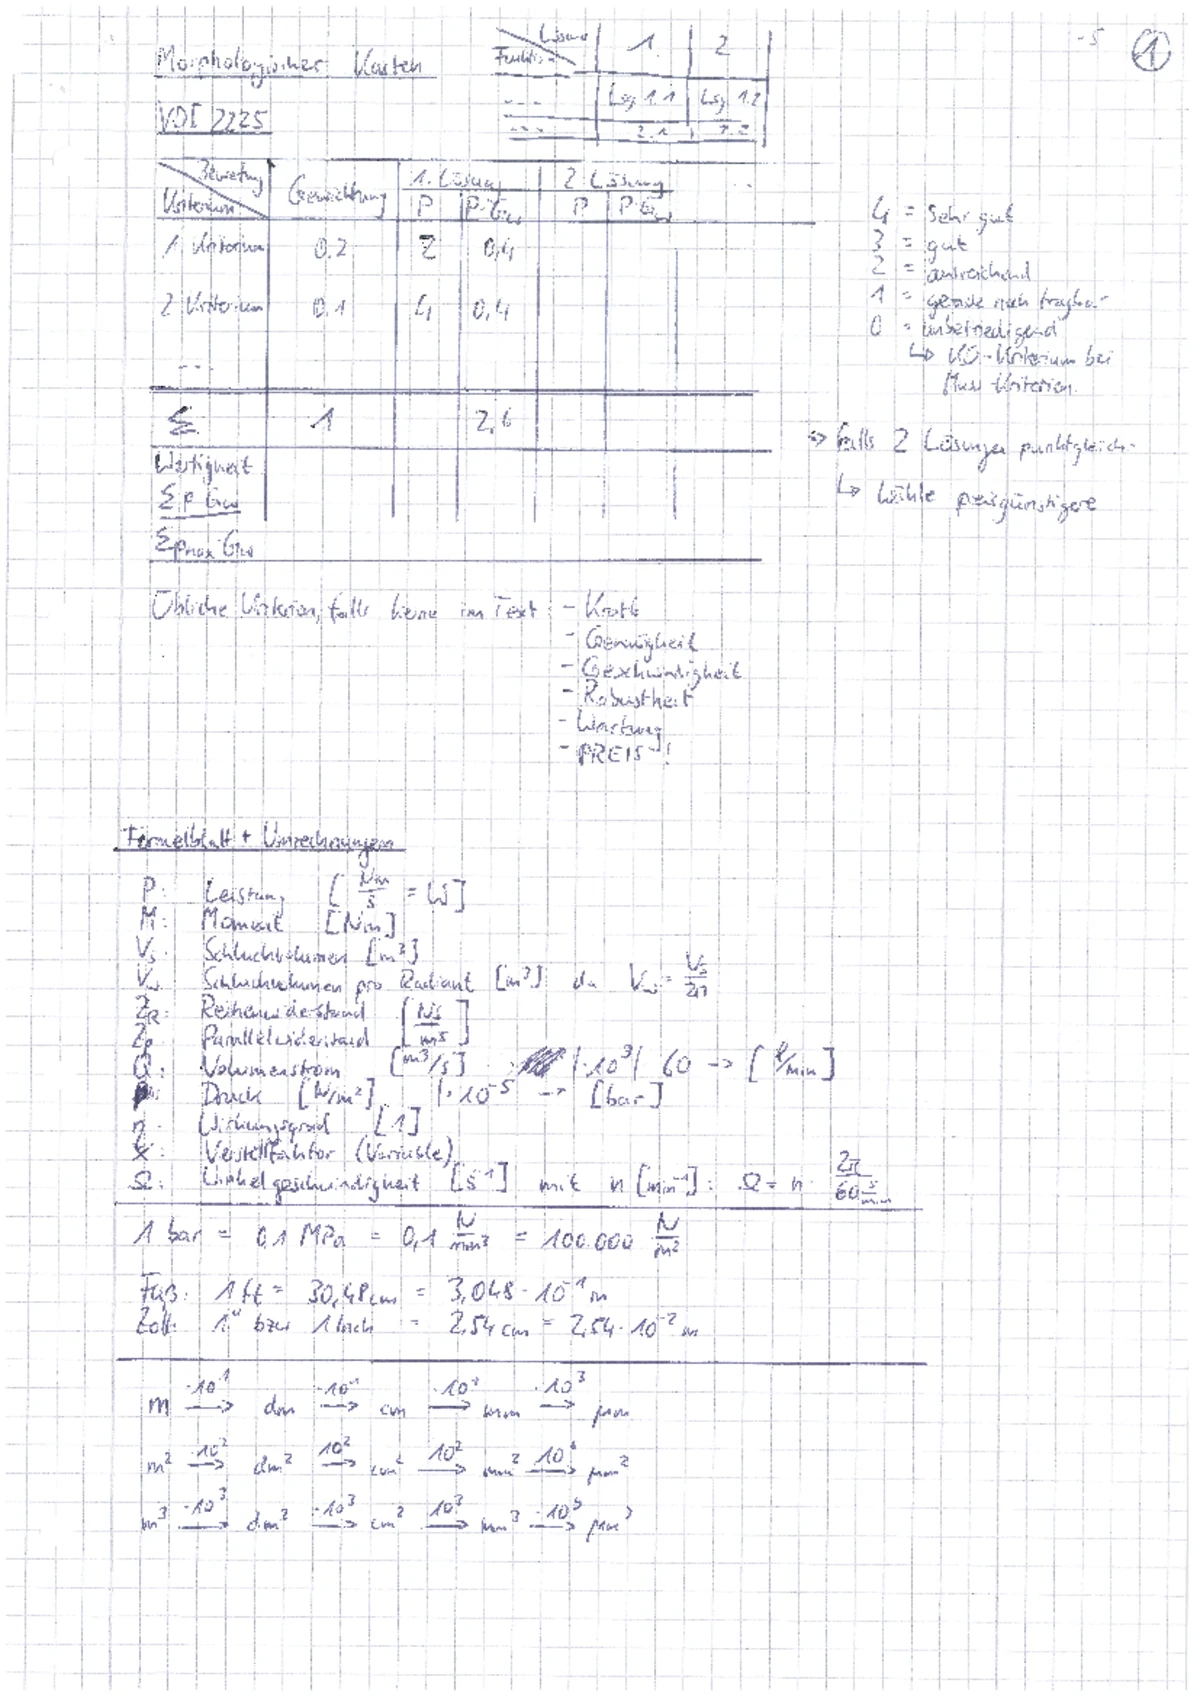 -5 1
Morphologischer Kasten
Lösung 1. 2
Funktion
--- Lsg 1.1 Lsg 1.2
--- 2.1 2.2
VDI 2225
Bewertung Gewichtung 1. Lösung 2. Lösung ...
Kriterium P P·Gw P P·Gw
1. Kriterium 0.2 2 0,4
2 Kriterium 0.1 4 0,4
---
Σ 1 2,6
Wertigkeit
Σ P Gw
Σ Pmax Gw
4 = Sehr gut
3 = gut
2 = ausreichend
1 = gerade noch tragbar
0 = unbefriedigend
↳ KO-Kriterium bei
Muss-Kriterien.
=> Falls 2 Lösungen punktgleich
↳ Wähle preisgünstigere
Übliche Kriterien, falls keine im Text: - Kraft
- Genauigkeit
- Geschwindigkeit
- Robustheit
- Wartung
- PREIS!
Formelblatt + Umrechnungen
P: Leistung [Nm/s = W]
M: Moment [Nm]
Vs: Schluckvolumen [m³]
Vω: Schluckvolumen pro Radiant [m³] da Vω = Vs/2π
ZR: Reihenwiderstand [Ns/m5]
Zp: Parallelwiderstand
Q: Volumenstrom [m³/s] |·10³| 60 -> [l/min]
Druck [N/m²] |·10-5 -> [bar]
η: Wirkungsgrad [1]
X: Verstellfaktor (Variable)
Ω: Winkelgeschwindigkeit [s-1] mit n [min-1]: Ω = n · 2π/60 s/min
1 bar = 0,1 MPa = 0,1 N/mm² = 100.000 N/m²
Fuß: 1 ft = 30,48cm = 3,048·10-1 m
Zoll: 1" bzw 1 Inch = 2,54 cm = 2,54·10-2 m
m ·10¹ → dm ·10¹ → cm ·10¹ → mm ·10³ → µm
m² ·10² → dm² 10² → cm² 10² → mm² 10⁶ → µm²
m³ ·10³ → dm³ ·10³ → cm³ 10³ → mm³ ·10⁹ → µm³